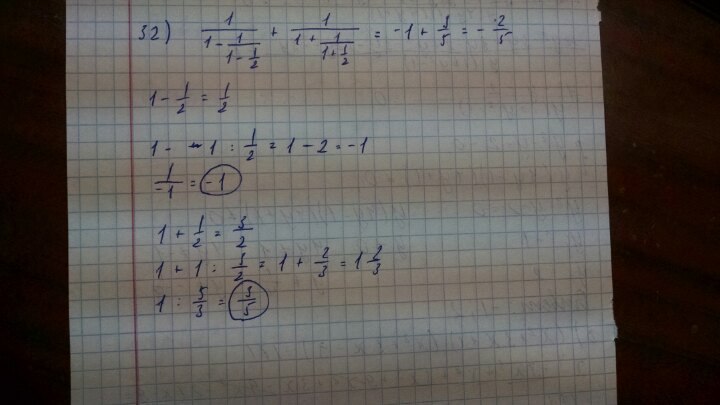 32) 1/(1 - 1/(1 - 1/2)) + 1/(1 + 1/(1 + 1/2)) = -1 + 3/5 = - 2/5
1 - 1/2 = 1/2
1 - 1 : 1/2 = 1 - 2 = -1
1/-1 = -1
1 + 1/2 = 3/2
1 + 1 : 3/2 = 1 + 2/3 = 1 2/3
1 : 5/3 = 3/5